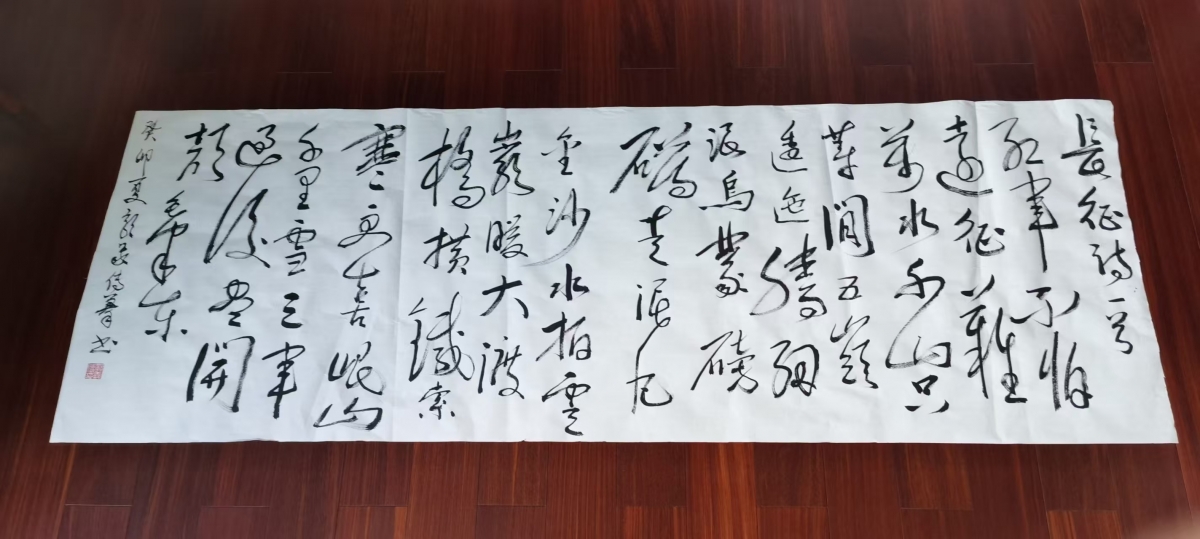 長征詩一首
红軍不怕
遠征難
萬水千山只
等閒五嶺
逶迤騰細
浪烏蒙磅
礴走泥丸
金沙水拍雲
巖暖大渡
橋橫鐵索
寒更喜岷山
千里雪三軍
過後尽開
顏
毛澤東
癸卯夏 書